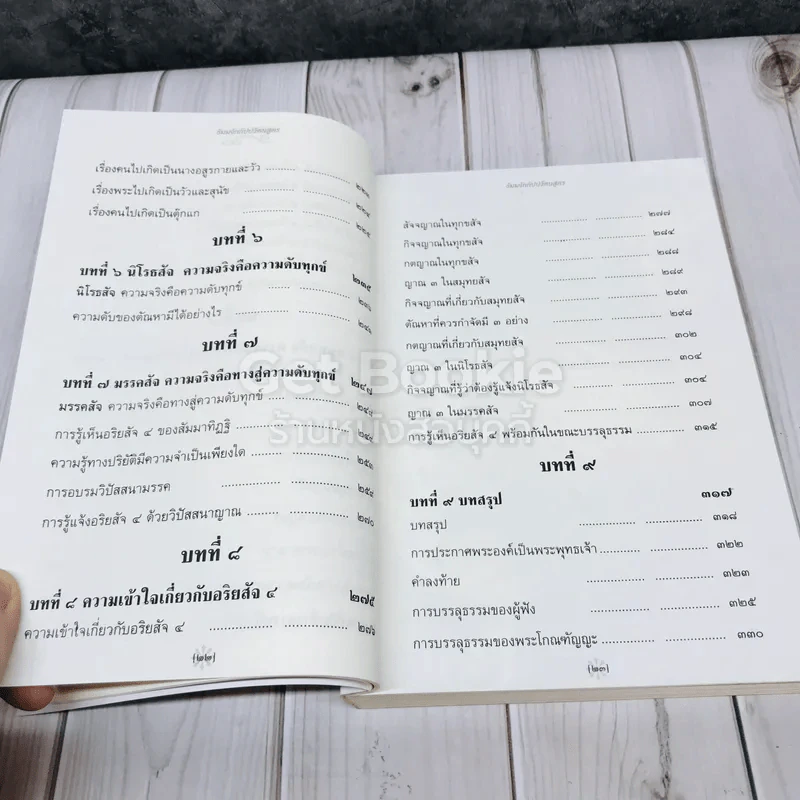 ธัมมจักกัปปวัตตนสูตร
เรื่องคนไปเกิดเป็นนางอสุรกายและวัว ๒๒๔
เรื่องพระไปเกิดเป็นวัวและสุนัข ๒๒๔
เรื่องคนไปเกิดเป็นตุ๊กแก ๒๒๕
บทที่ ๖
บทที่ ๖ นิโรธสัจ ความจริงคือความดับทุกข์ ๒๓๕
นิโรธสัจ ความจริงคือความดับทุกข์ ๒๓๖
ความดับของตัณหามีได้อย่างไร
บทที่ ๗
บทที่ ๗ มรรคสัจ ความจริงคือทางสู่ความดับทุกข์ ๒๔๗
มรรคสัจ ความจริงคือทางสู่ความดับทุกข์
การรู้เห็นอริยสัจ ๔ ของสัมมาทิฏฐิ
ความรู้ทางปริยัติมีความจำเป็นเพียงใด
การอบรมวิปัสสนามรรค ๒๕๔
การรู้แจ้งอริยสัจ ๔ ด้วยวิปัสสนาญาณ ๒๗๐
บทที่ ๘
บทที่ ๘ ความเข้าใจเกี่ยวกับอริยสัจ ๔ ๒๗๕
ความเข้าใจเกี่ยวกับอริยสัจ ๔ ๒๗๖
[๒๒]
ธัมมจักกัปปวัตตนสูตร
สัจจญาณในทุกขสัจ ๒๗๗
กิจจญาณในทุกขสัจ ๒๘๔
กตญาณในทุกขสัจ ๒๘๘
ญาณ ๓ ในสมุทยสัจ ๒๘๙
กิจจญาณที่เกี่ยวกับสมุทยสัจ ๒๙๓
ตัณหาที่ควรกำจัดมี ๓ อย่าง ๒๙๘
กตญาณที่เกี่ยวกับสมุทยสัจ ๓๐๒
ญาณ ๓ ในนิโรธสัจ ๓๐๔
กิจจญาณที่รู้ว่าต้องรู้แจ้งนิโรธสัจ ๓๐๔
ญาณ ๓ ในมรรคสัจ ๓๐๗
การรู้เห็นอริยสัจ ๔ พร้อมกันในขณะบรรลุธรรม ๓๑๕
บทที่ ๙
บทที่ ๙ บทสรุป ๓๑๗
บทสรุป ๓๑๘
การประกาศพระองค์เป็นพระพุทธเจ้า ๓๒๒
คำลงท้าย ๓๒๓
การบรรลุธรรมของผู้ฟัง ๓๒๕
การบรรลุธรรมของพระโกณฑัญญะ ๓๓๐
[๒๓]
Get Bookie
ร้านหนังสือบุคกี้